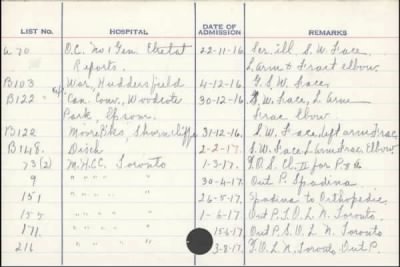 LIST NO. HOSPITAL DATE OF ADMISSION REMARKS
A 70 O.C. No 1 Gen. Etretat 22-11-16. Ser. ill S.W. Face,
Reports. L arm & Fract elbow.
B103 War, Huddersfield 4-12-16. G.S.W. Face,
B122 " Can. Conv., Woodcote 30-12-16. S.W. Face, L Arm
Park, Epsom. Frac Elbow.
B122 Moore Bks, Shorncliffe 31-12-16. S.W. Face, left arm Frac,
B148. Disch 2-2-17. S.W. Face L arm Frac, Elbow
73(2) M.H.C.C. Toronto 1-3-17. Cl. II for
9 " " " 30-4-17. Out P. Spadina
151 " " " 26-5-17. Spadina to Orthopedic.
" " " 1-6-17 Out P. Toronto.
171. " " " 15-6-17 Out P. Toronto
216 " " " 3-8-17. Toronto Out P.